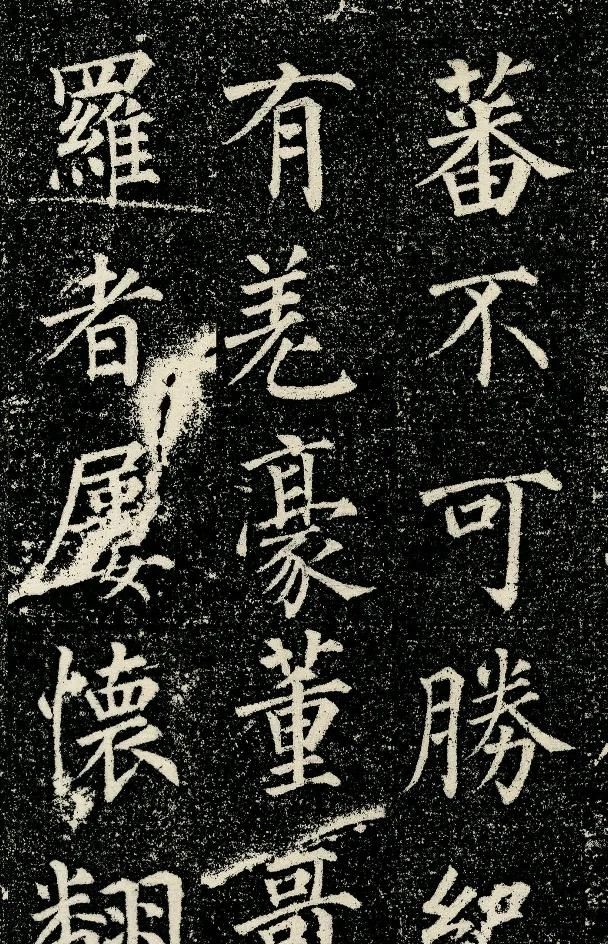 蕃不可勝紀
有羌豪董哥
羅者屢懷翻